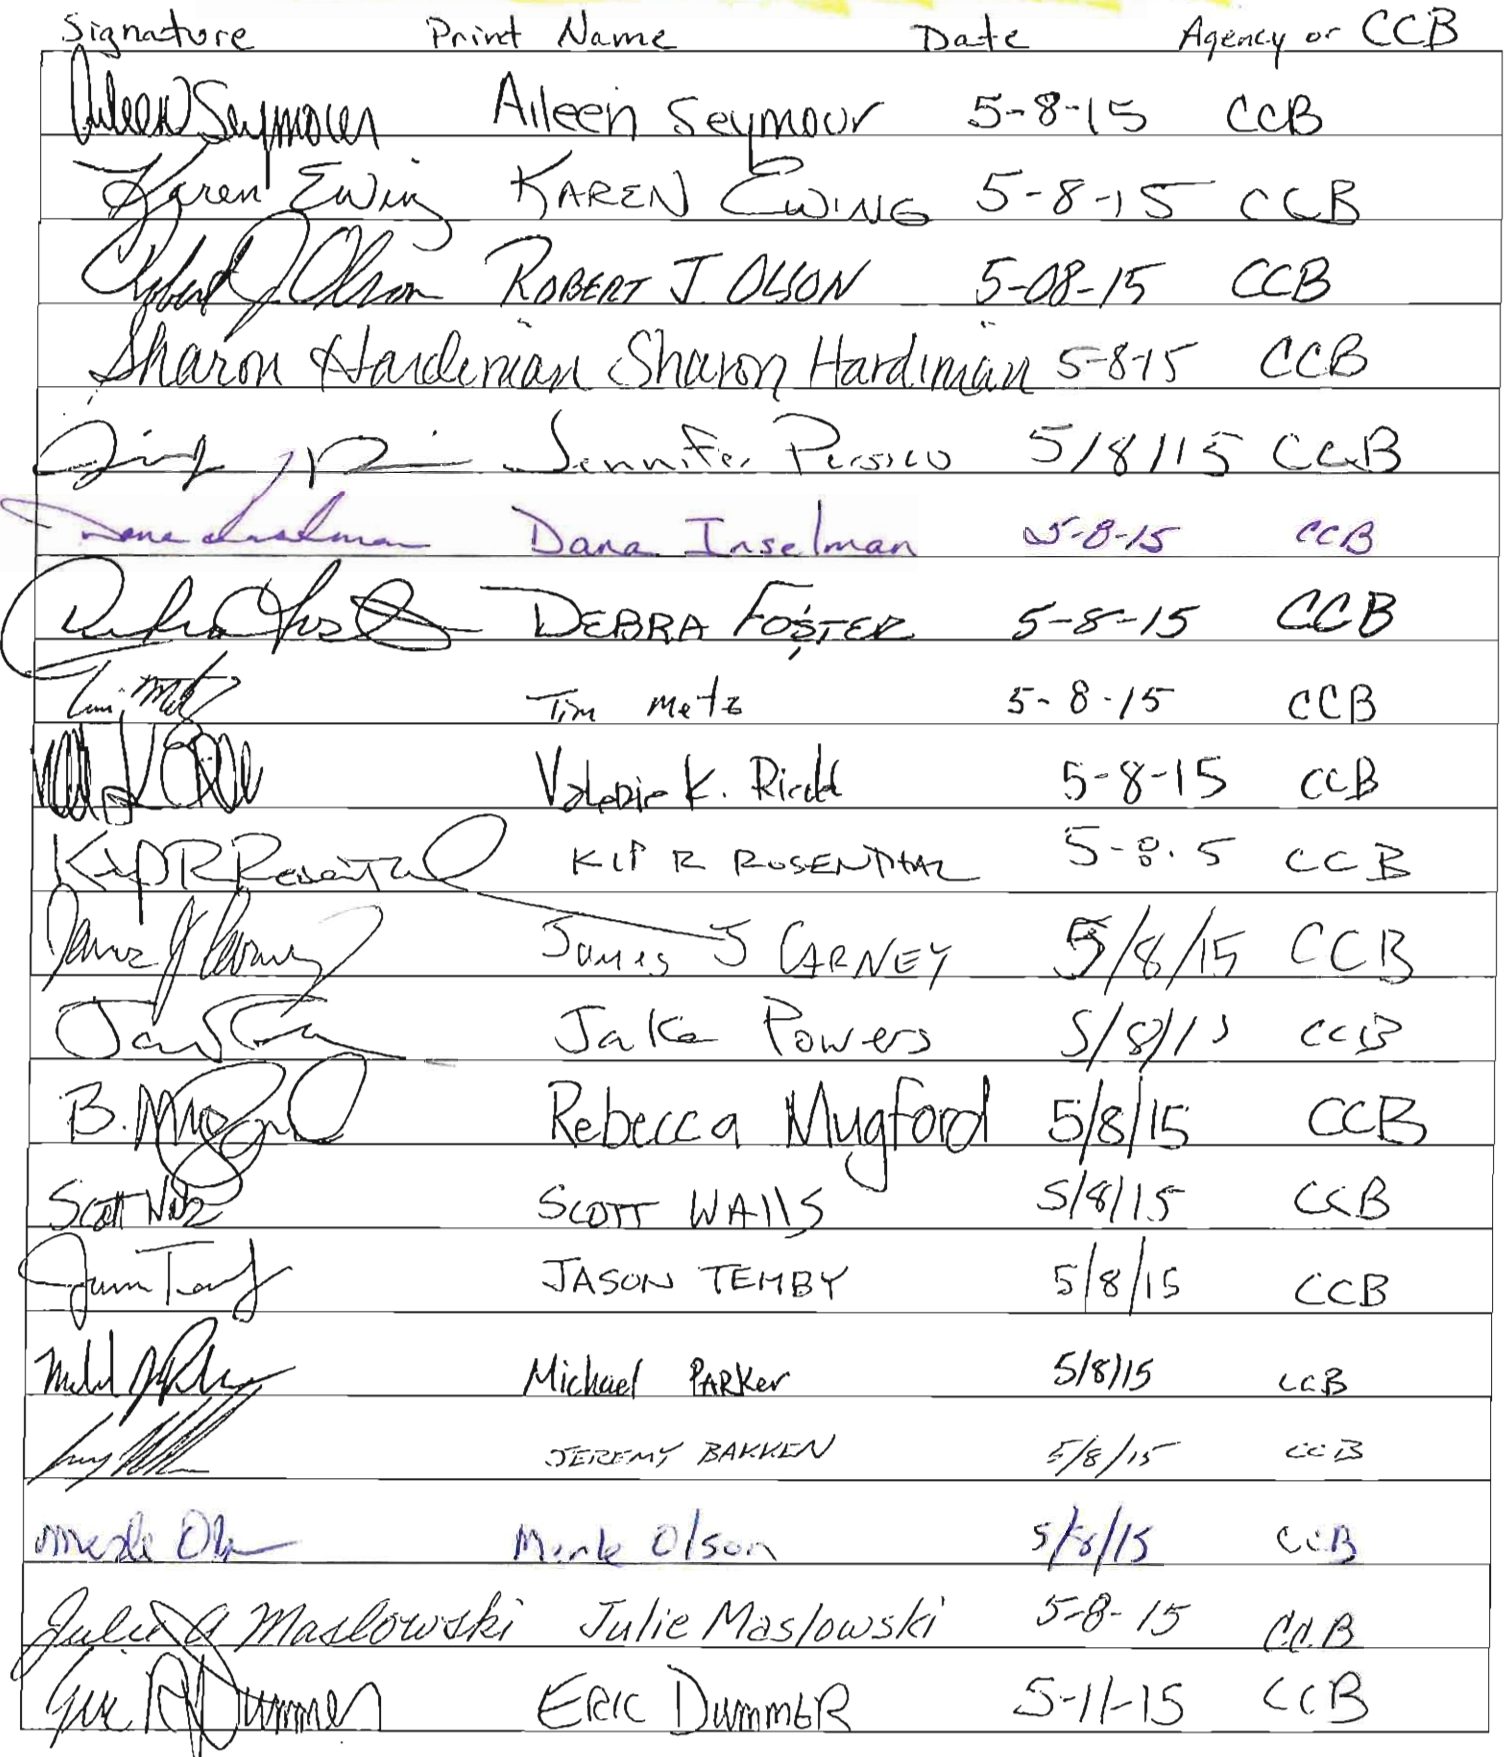 Signature Print Name Date Agency or CCB
Aileen Seymour Aileen Seymour 5-8-15 CCB
Karen Ewing KAREN EWING 5-8-15 CCB
Robert J. Olson ROBERT J. OLSON 5-08-15 CCB
Sharon Hardiman Sharon Hardiman 5-8-15 CCB
Jennifer Persico 5/8/15 CCB
Dana Inselman Dana Inselman 5-8-15 CCB
Debra Foster DEBRA FOSTER 5-8-15 CCB
Tim Metz Tim Metz 5-8-15 CCB
Valerie K. 5-8-15 CCB
Kip R Rosenthal KIP R ROSENTHAL 5-8-5 CCB
James J Carney James J CARNEY 5/8/15 CCB
Jake Powers 5/8/15 CCB
B. Mugford Rebecca Mugford 5/8/15 CCB
Scott Walls SCOTT WAllS 5/8/15 CCB
JASON TEMBY 5/8/15 CCB
Michael PARKer 5/8/15 CCB
JEREMY BAKKEN 5/8/15 CCB
Merle Olson Merle Olson 5/8/15 CCB
Julie A Maslowski Julie Maslowski 5-8-15 CCB
Eric R Dummer ERIC DummER 5-11-15 CCB